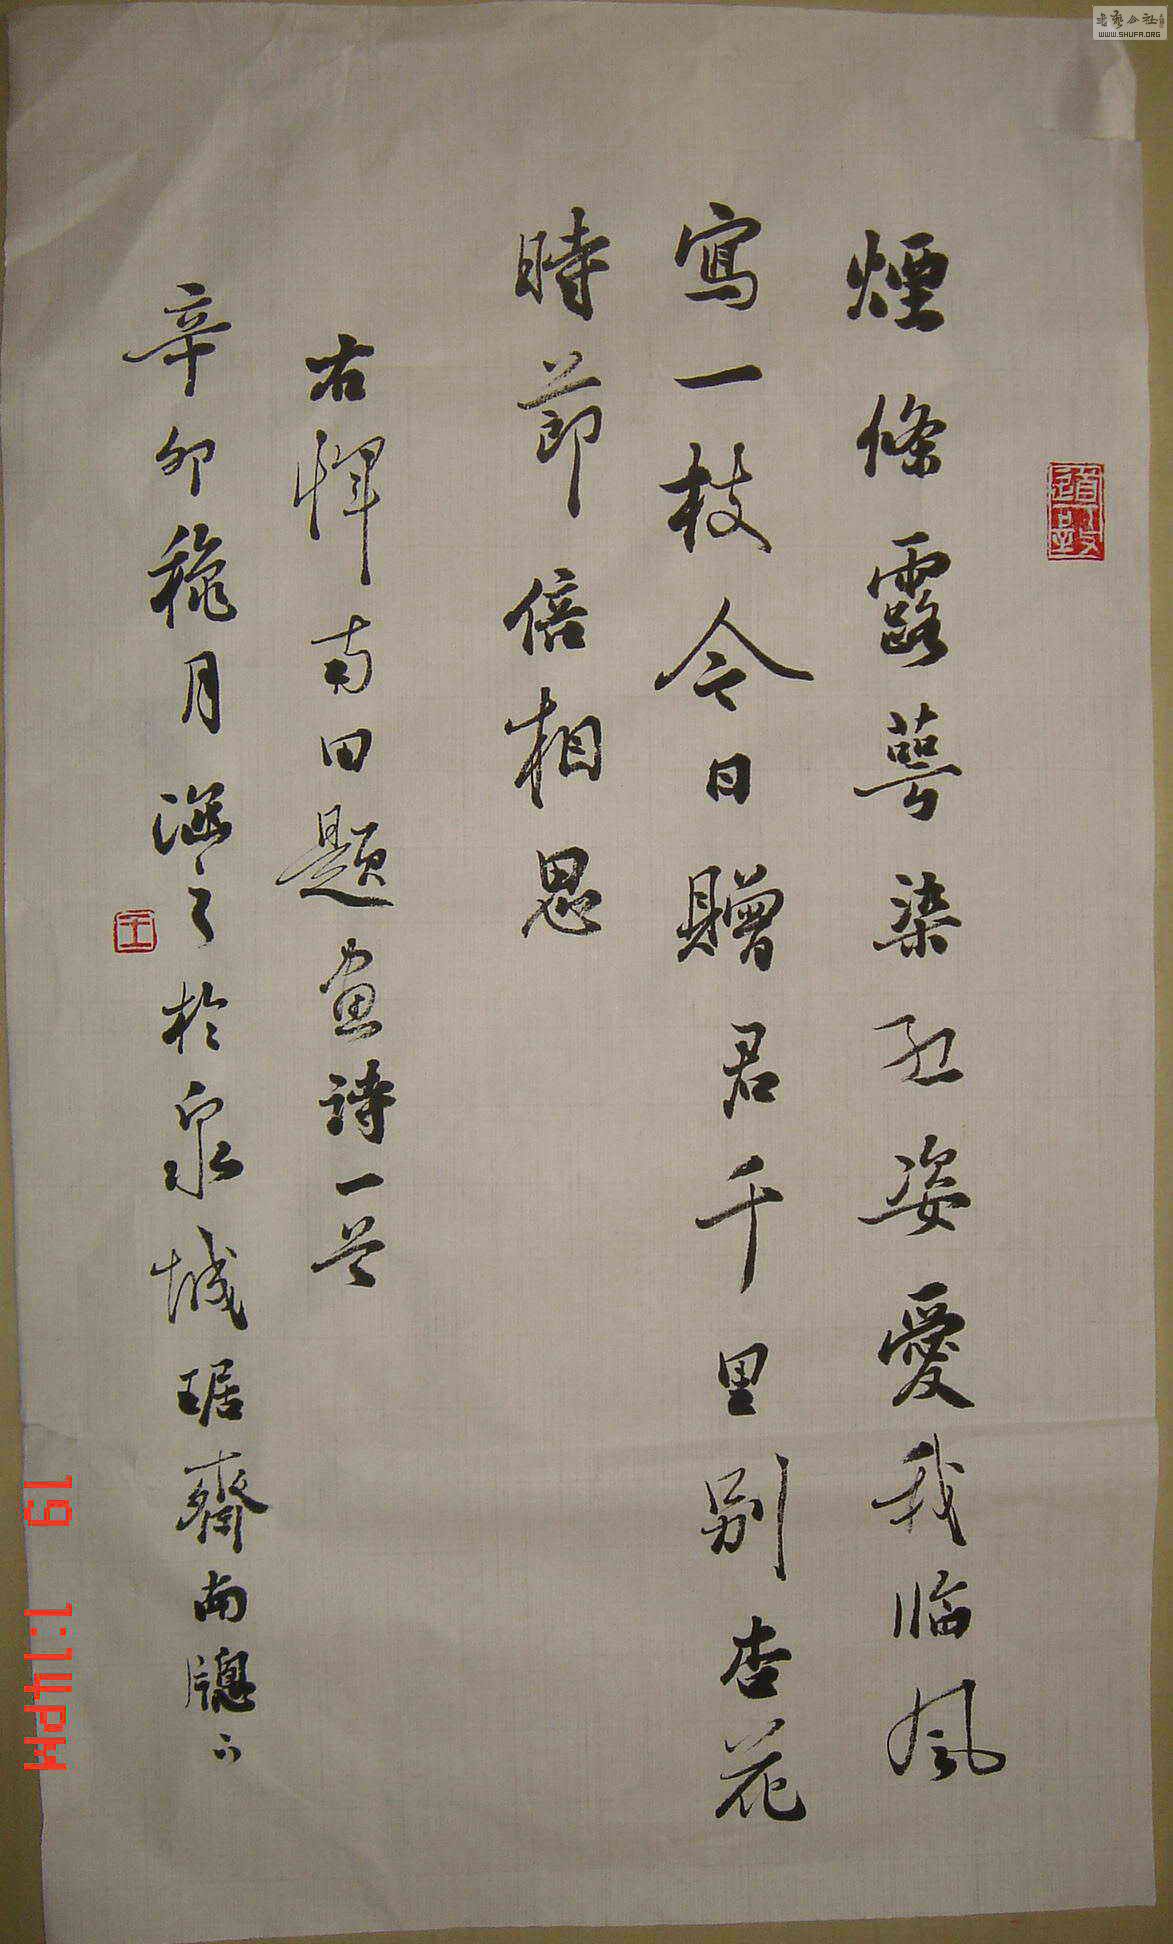 煙條露萼染紅姿愛我臨風
寫一枝今日贈君千里別杏花
時節倍相思
右惲南田題畫詩一首
辛卯穐月涵之於泉城琚齋南牕下
王
19 1:14PM
WWW.SHUFA.ORG